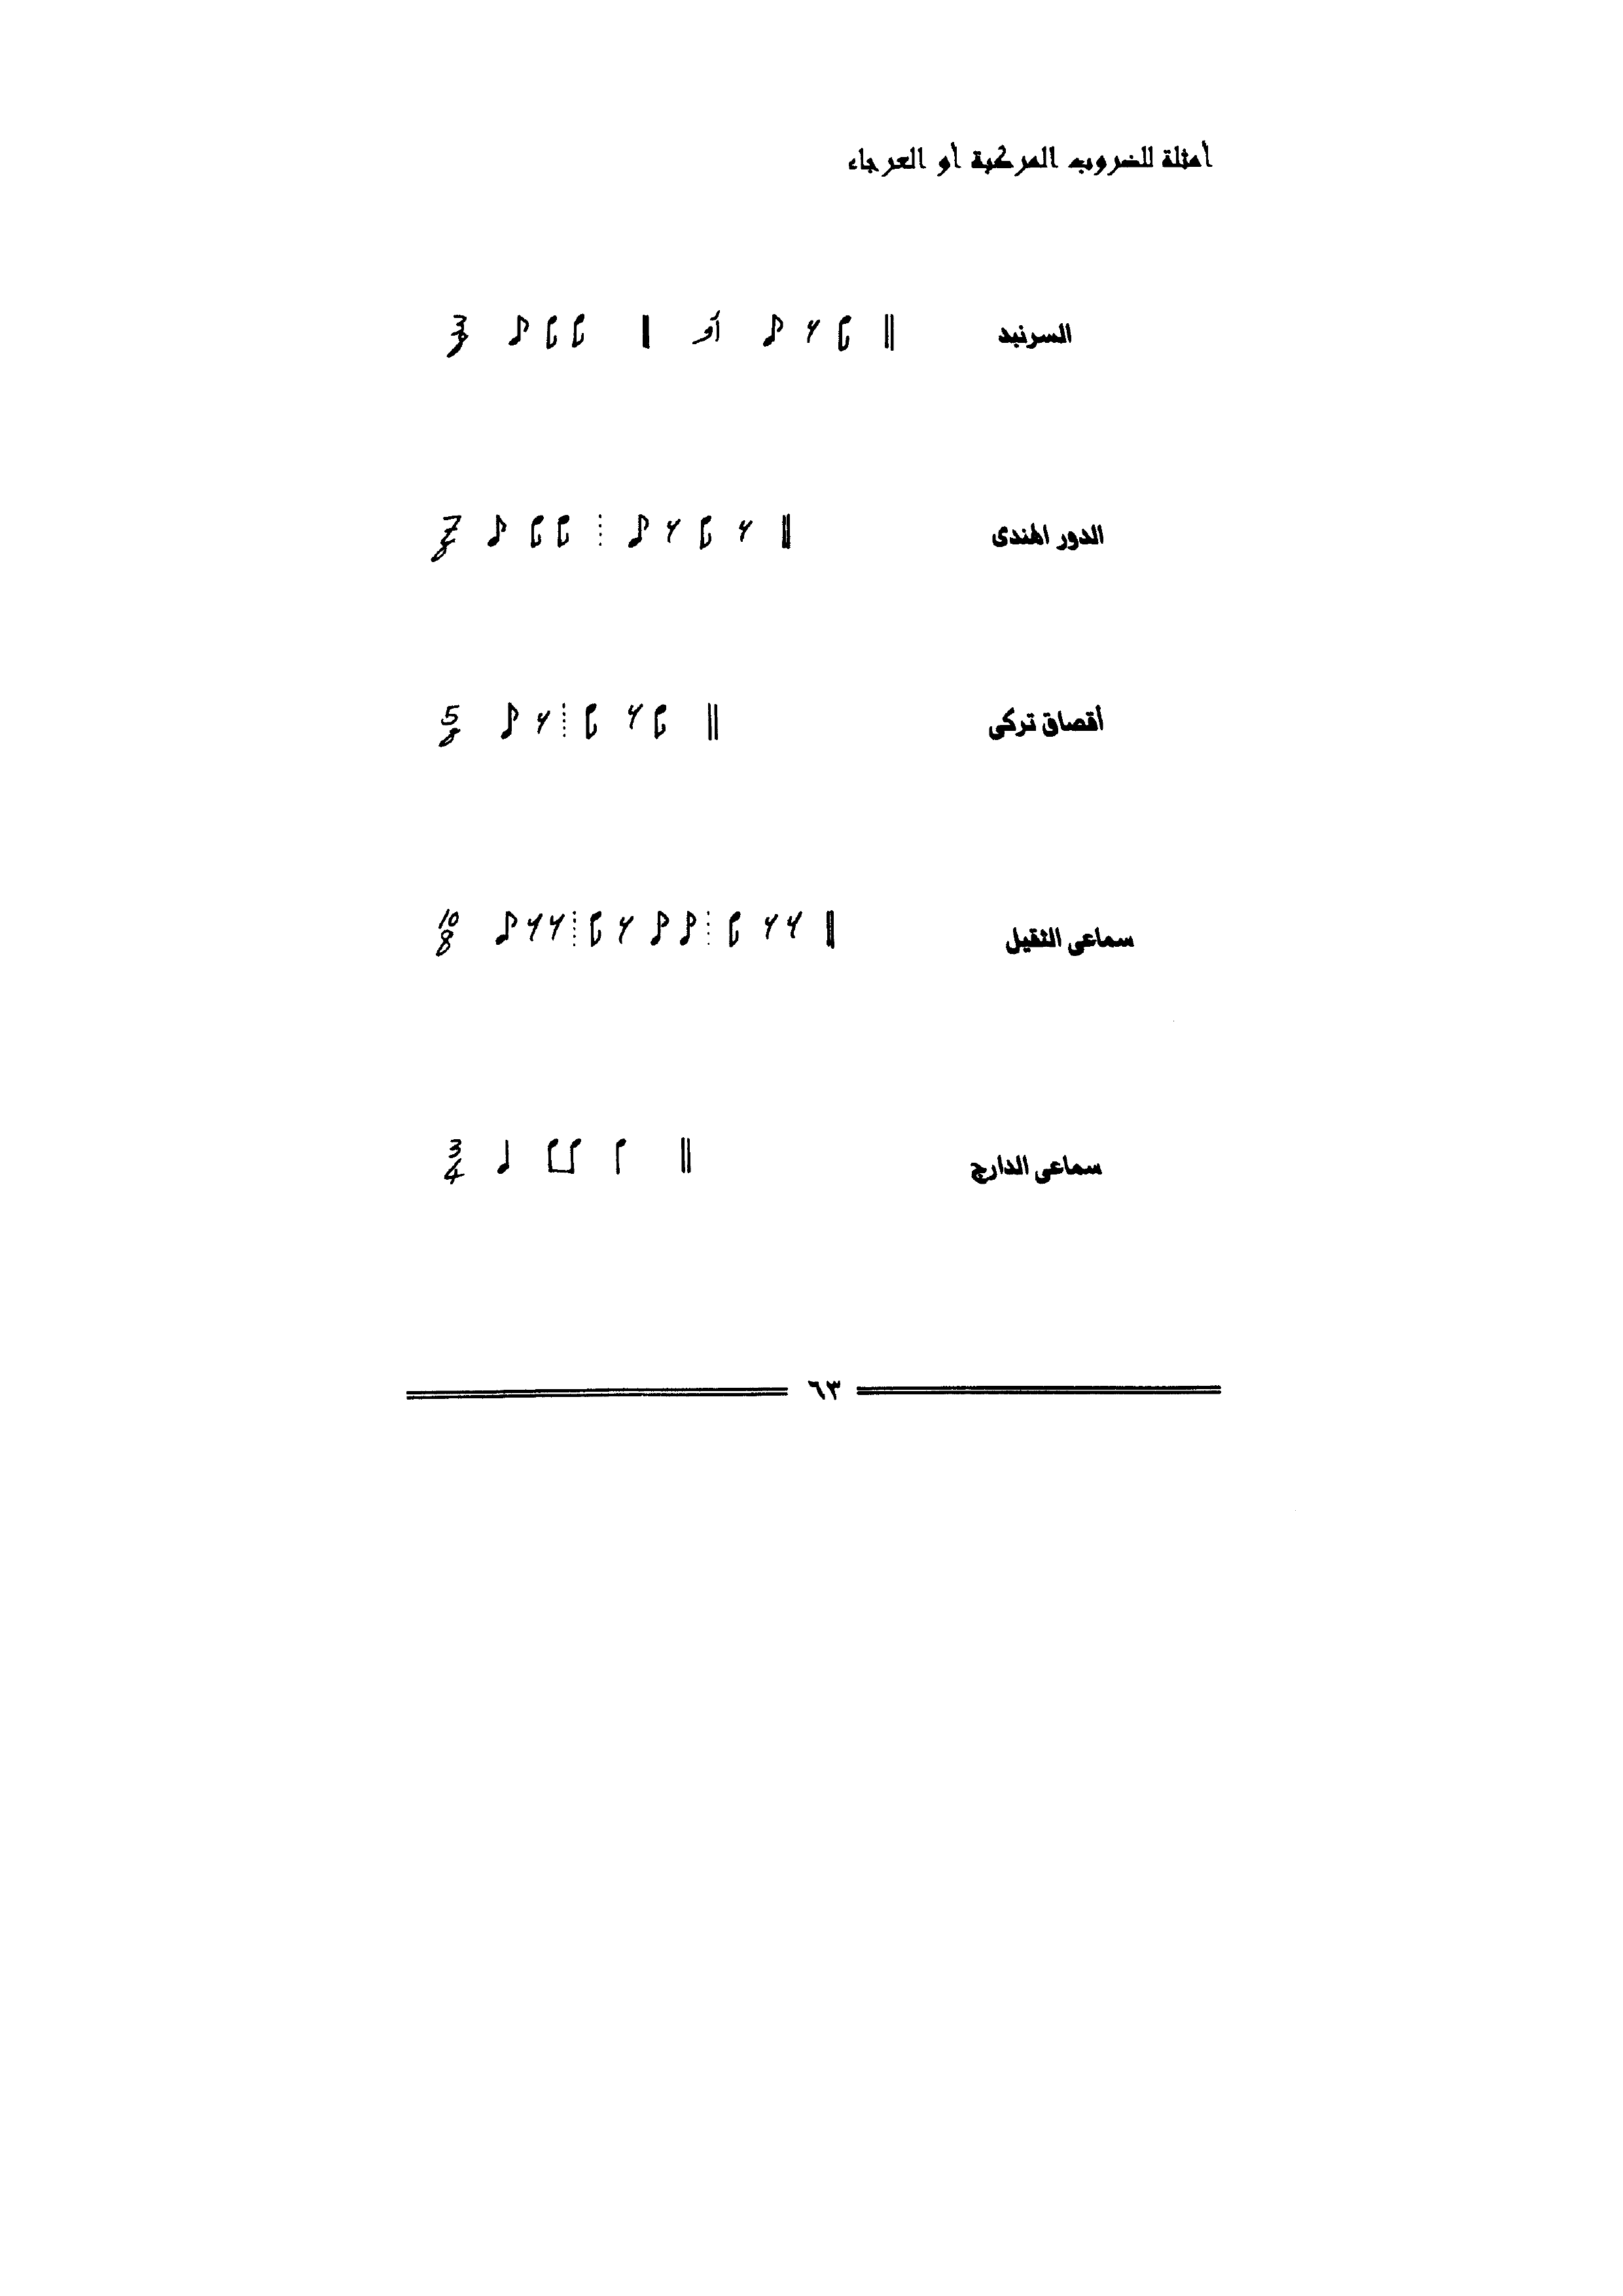 أمثلة للضروب المركبة أو العرجاء
السرنبد 3/8 أو
الدور الهندى 7/8
أقصاق تركى 5/8
سماعى الثقيل 10/8
سماعى الدارج 3/4
٦٣